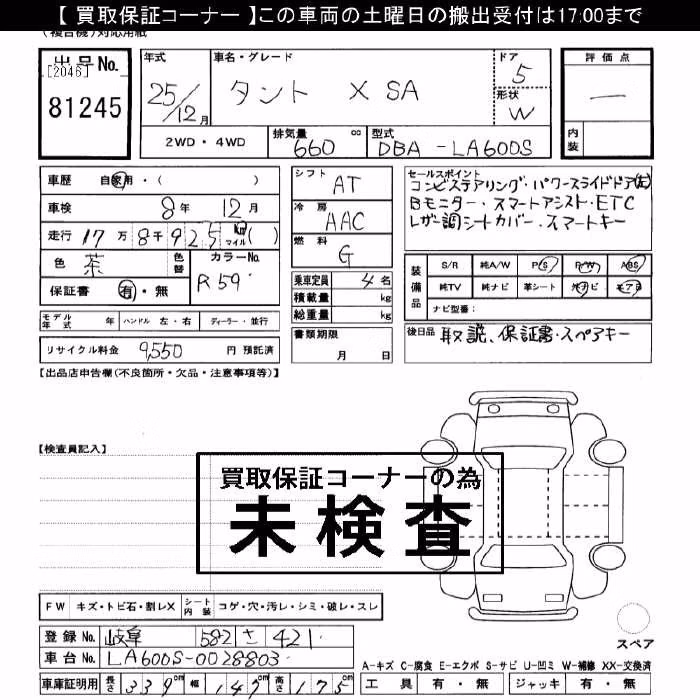 【 買取保証コーナー 】この車両の土曜日の搬出受付は17:00まで
(複合機)対応用紙
出品No.
[2046]
81245
年式
25/12月
車名・グレード
タント X SA
ドア
5
形状
W
評価点
一
内装
2WD・4WD
排気量
660 cc
型式
DBA-LA600S
車歴 自家用・( )
車検 8年 12月
走行 17万8千925 km マイル( )
色 茶
色替
カラーNo.
R59
保証書 有・無
シフト
AT
冷房
AAC
燃料
G
乗車定員 4名
積載量 kg
総重量 kg
セールスポイント
コンビステアリング・パワースライドドア(左)
Bモニター・スマートアシスト・ETC
レザー調シートカバー・スマートキー
装備品
S/R 純A/W P/S P/W ABS
純TV 純ナビ 革シート 社ナビ エアB
ナビ型番:
モデル年式 年 ハンドル 左・右 ディーラー・並行
書類期限
月 日
後日品 取説、保証書・スペアキー
リサイクル料金 9,550 円 預託済
【出品店申告欄(不良箇所・欠品・注意事項等)】
【検査員記入】
買取保証コーナーの為
未検査
FW キズ・トビ石・割レX シート内装 コゲ・穴・汚レ・シミ・破レ・スレ
登録No. 岐阜 582 さ 421
車台No. LA600S-0028803
車庫証明用 長さ 339cm 幅 147cm 高さ 175cm
スペア
A-キズ C-腐食 E-エクボ S-サビ U-凹ミ W-補修 XX-交換済
工具 有・無 ジャッキ 有・無